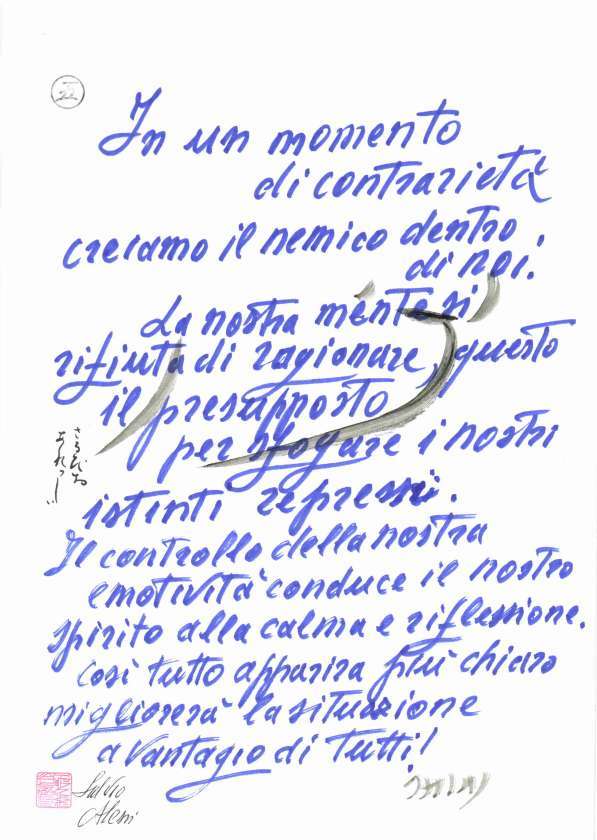 22
In un momento
di contrarietà
creiamo il nemico dentro
di noi.
La nostra mente si
rifiuta di ragionare, questo
il presupposto
per sfogare i nostri
istinti repressi.
Il controllo della nostra
emotività conduce il nostro
spirito alla calma e riflessione.
Così tutto apparira più chiaro
migliorerà la situazione
a vantagio di tutti!
Silvio
Alessi